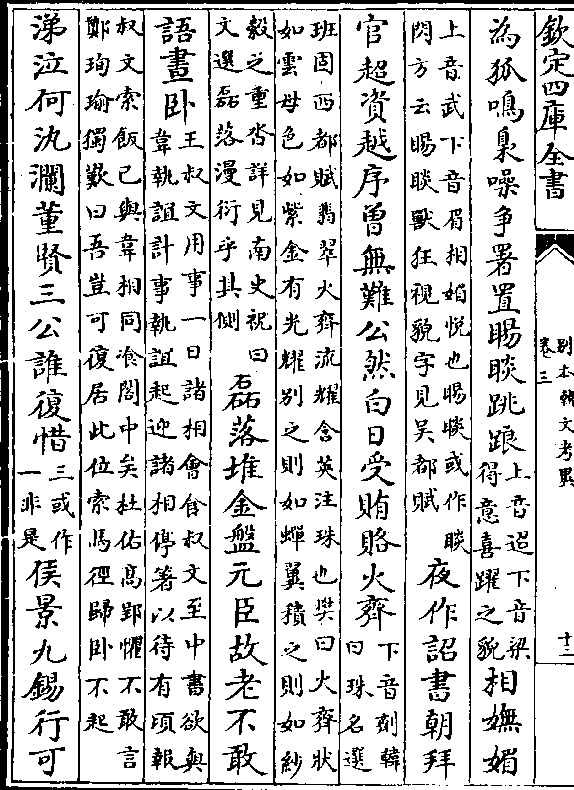 欽定四庫全書
別本韓文考異
卷三
十二
為狐鳴梟噪爭署置賜睒跳踉上音迢下音梁得意喜躍之貌相嫵媚
上音武下音眉相媚悦也賜睒或作睒閃方云賜睒獸狂視貌字見吴都賦夜作詔書朝拜
官超資越序曽無難公然白日受賄賂火齊下音劑韓曰珠名選
班固西都賦翡翠火齊流耀含英注珠也樊曰火齊狀如雲母色如紫金有光耀别之則如蟬翼積之則如紗
縠之重沓詳見南史祝曰文選磊落漫衍乎其側磊落堆金盤元臣故老不敢
語晝卧王叔文用事一日諸相會食叔文至中書欲與韋執誼計事執誼起迎諸相停箸以待有頃報
叔文索飯已與韋相同飡閤中矣杜佑髙郢懼不敢言鄭珣瑜獨歎曰吾豈可復居此位索馬徑歸卧不起
涕泣何汍瀾董賢三公誰復惜三或作一非是侯景九錫行可